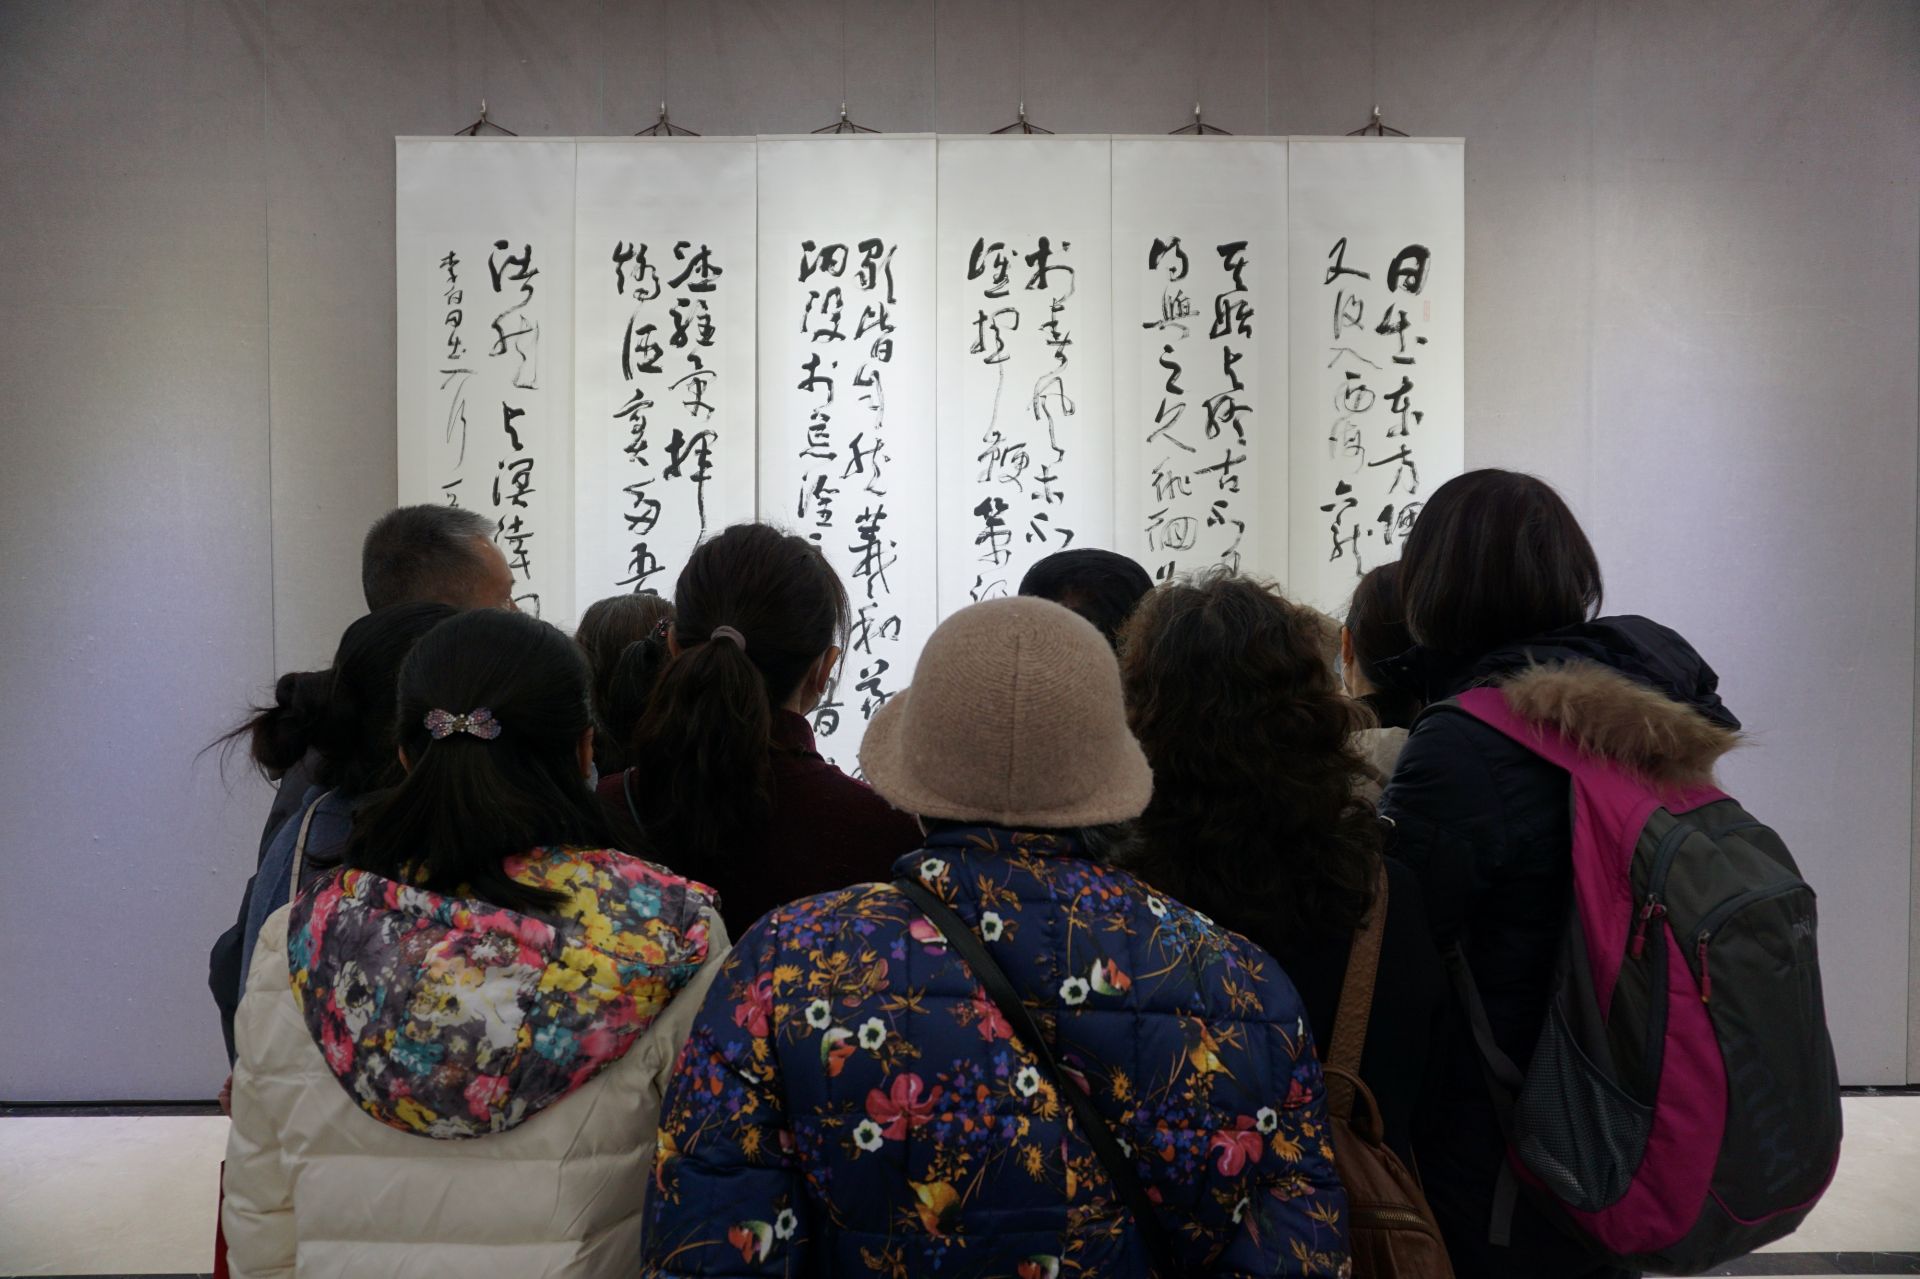 日出東方隈
又復入西海六龍
其始与終古不
得與之久徘徊
於春風木不
誰揮鞭策驅
歇皆自然羲和羲
汩沒於荒淫
德駐景揮
矯誣實多吾
浩然与溟涬同
李白日出入行